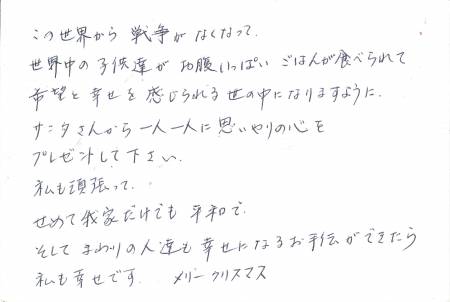 この世界から 戦争が なくなって.
世界中の子供達が お腹いっぱい ごはんが食べられて
希望と幸せを感じられる世の中になりますように.
サンタさんから一人一人に思いやりの心を
プレゼントして下さい.
私も頑張って.
せめて我家だけでも 平和で.
そして まわりの人達も幸せになるお手伝ができたら
私も幸せです. メリークリスマス